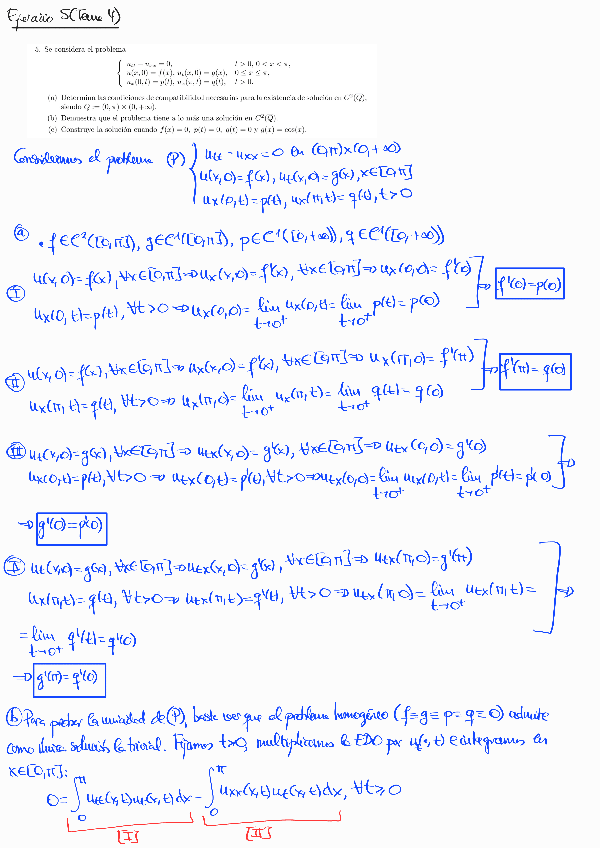 Ejercicio 5 (Tema 4)
5. Se considera el problema
u_tt − u_xx = 0, t > 0, 0 < x < π,
u(x, 0) = f(x), u_t(x, 0) = g(x), 0 ≤ x ≤ π,
u_x(0, t) = p(t), u_x(π, t) = q(t), t > 0.
(a) Determina las condiciones de compatibilidad necesarias para la existencia de solución en C²(Q̄),
siendo Q := (0, π) × (0, +∞).
(b) Demuestra que el problema tiene a lo más una solución en C²(Q̄)
(c) Construye la solución cuando f(x) = 0, p(t) = 0, q(t) = 0 y g(x) = cos(x).
Consideramos el problema (P) { u_tt − u_xx = 0 en (0,π)×(0,+∞)
u(x,0) = f(x), u_t(x,0) = g(x), x∈[0,π]
u_x(0,t) = p(t), u_x(π,t) = q(t), t>0
(a) • f∈C²([0,π]), g∈C¹([0,π]), p∈C¹([0,+∞)), q∈C¹([0,+∞))
(I) u(x,0) = f(x), ∀x∈[0,π] ⇒ u_x(x,0) = f'(x), ∀x∈[0,π] ⇒ u_x(0,0) = f'(0)
u_x(0,t) = p(t), ∀t>0 ⇒ u_x(0,0) = lim_{t→0⁺} u_x(0,t) = lim_{t→0⁺} p(t) = p(0)
⇒ f'(0) = p(0)
(II) u(x,0) = f(x), ∀x∈[0,π] ⇒ u_x(x,0) = f'(x), ∀x∈[0,π] ⇒ u_x(π,0) = f'(π)
u_x(π,t) = q(t), ∀t>0 ⇒ u_x(π,0) = lim_{t→0⁺} u_x(π,t) = lim_{t→0⁺} q(t) = q(0)
⇒ f'(π) = q(0)
(III) u_t(x,0) = g(x), ∀x∈[0,π] ⇒ u_tx(x,0) = g'(x), ∀x∈[0,π] ⇒ u_tx(0,0) = g'(0)
u_x(0,t) = p(t), ∀t>0 ⇒ u_tx(0,t) = p'(t), ∀t>0 ⇒ u_tx(0,0) = lim_{t→0⁺} u_tx(0,t) = lim_{t→0⁺} p'(t) = p'(0) ⇒
⇒ g'(0) = p'(0)
(IV) u_t(x,0) = g(x), ∀x∈[0,π] ⇒ u_tx(x,0) = g'(x), ∀x∈[0,π] ⇒ u_tx(π,0) = g'(π)
u_x(π,t) = q(t), ∀t>0 ⇒ u_tx(π,t) = q'(t), ∀t>0 ⇒ u_tx(π,0) = lim_{t→0⁺} u_tx(π,t) = ⇒
= lim_{t→0⁺} q'(t) = q'(0)
⇒ g'(π) = q'(0)
(b) Para probar la unicidad de (P), basta ver que el problema homogéneo (f=g=p=q=0) admite
como única solución la trivial. Fijamos t>0, multiplicamos la EDO por u_t(·,t) e integramos en
x∈[0,π]:
0 = ∫₀^π u_tt(x,t)u_t(x,t)dx − ∫₀^π u_xx(x,t)u_t(x,t)dx, ∀t≥0
[I] [II]